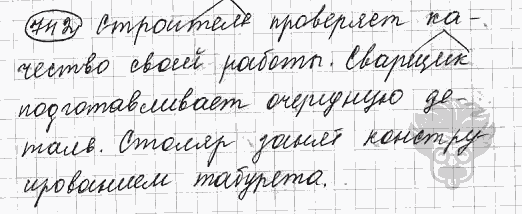 742 Строитель проверяет ка-
чество своей работы. Сварщик
подготавливает очередную де
таль. Столяр занят констру
ированием табурета.